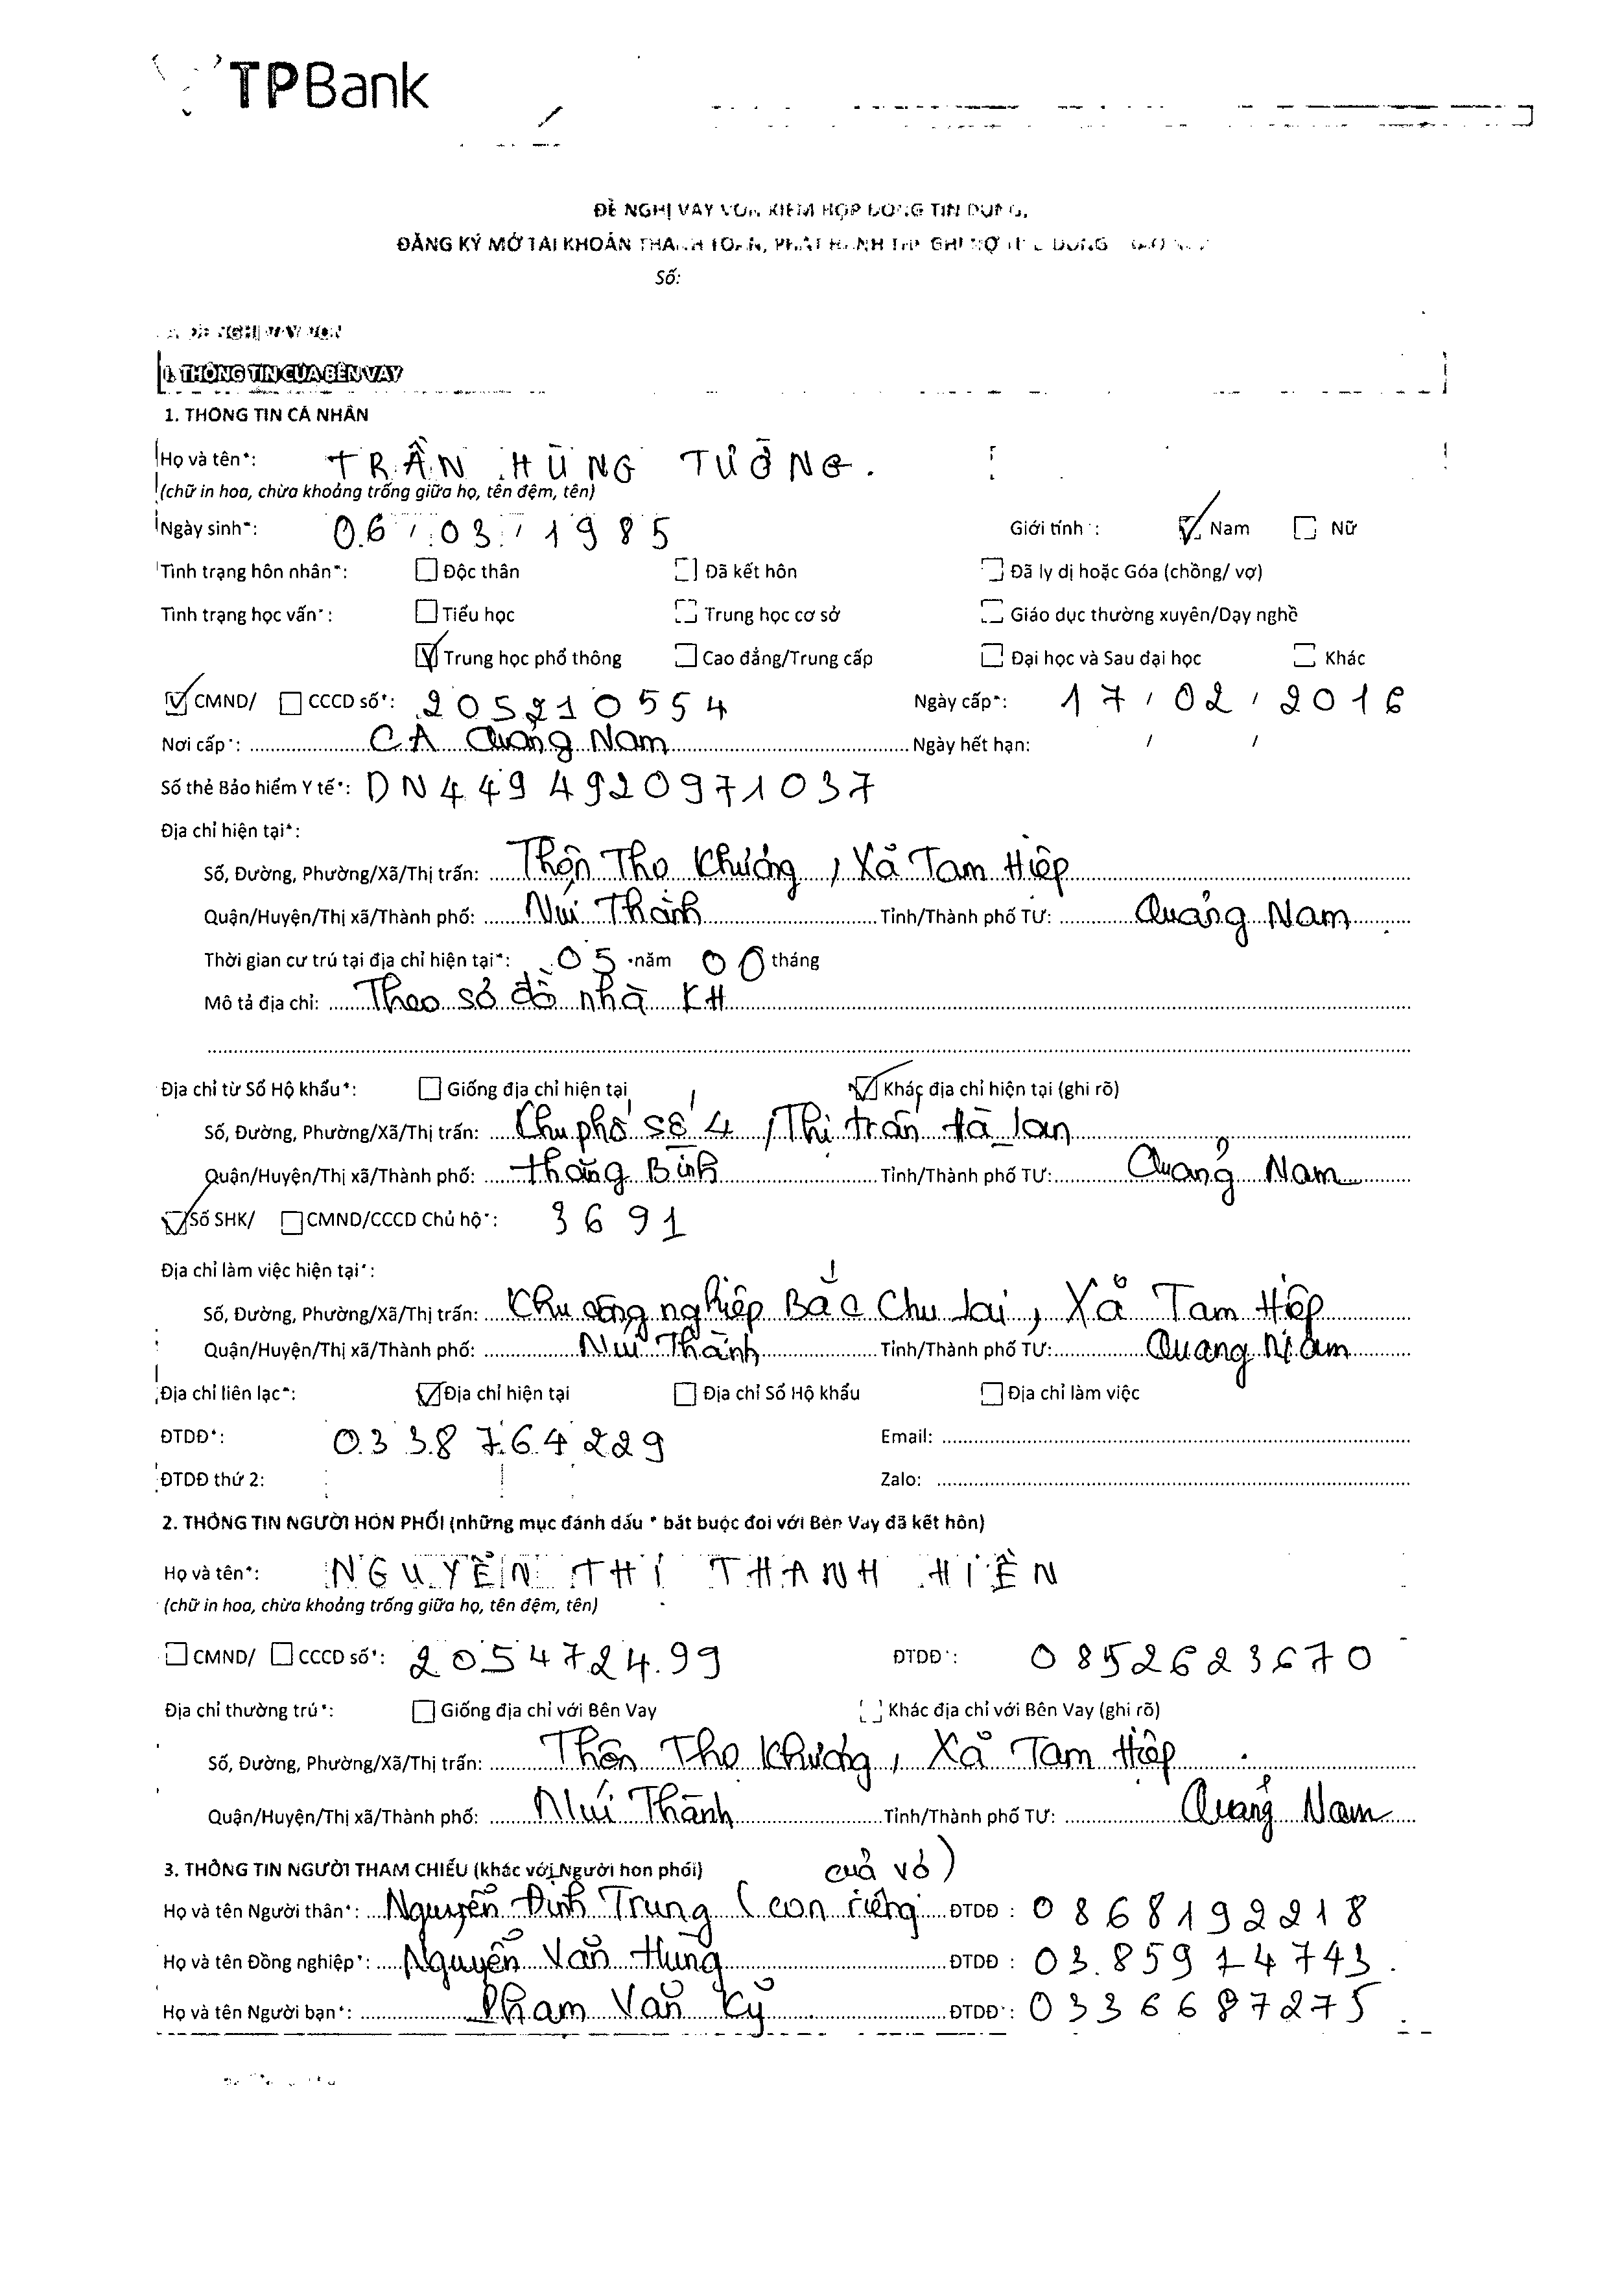 TPBank
ĐỀ NGHỊ VAY VỐN KIÊM HỢP ĐỒNG TÍN DỤNG,
ĐĂNG KÝ MỞ TÀI KHOẢN THANH TOÁN, PHÁT HÀNH THẺ GHI NỢ
Số:
ĐỀ NGHỊ VAY VỐN
I. THÔNG TIN CỦA BÊN VAY
1. THÔNG TIN CÁ NHÂN
Họ và tên*: TRẦN HÙNG TƯỞNG.
(chữ in hoa, chừa khoảng trống giữa họ, tên đệm, tên)
Ngày sinh*: 06 / 03 / 1985 Giới tính*: Nam Nữ
Tình trạng hôn nhân*: Độc thân Đã kết hôn Đã ly dị hoặc Góa (chồng/ vợ)
Tình trạng học vấn*: Tiểu học Trung học cơ sở Giáo dục thường xuyên/Dạy nghề
Trung học phổ thông Cao đẳng/Trung cấp Đại học và Sau đại học Khác
CMND/ CCCD số*: 205210554 Ngày cấp*: 17 / 02 / 2016
Nơi cấp*: CA Quảng Nam Ngày hết hạn: / /
Số thẻ Bảo hiểm Y tế*: DN4494920971037
Địa chỉ hiện tại*:
Số, Đường, Phường/Xã/Thị trấn: Thôn Thọ Khương, Xã Tam Hiệp
Quận/Huyện/Thị xã/Thành phố: Núi Thành Tỉnh/Thành phố TƯ: Quảng Nam
Thời gian cư trú tại địa chỉ hiện tại*: 05 năm 00 tháng
Mô tả địa chỉ: Theo sơ đồ nhà KH
Địa chỉ từ Sổ Hộ khẩu*: Giống địa chỉ hiện tại Khác địa chỉ hiện tại (ghi rõ)
Số, Đường, Phường/Xã/Thị trấn: Khu phố số 4, Thị trấn Hà lan
Quận/Huyện/Thị xã/Thành phố: Thăng Bình Tỉnh/Thành phố TƯ: Quảng Nam
Số SHK/ CMND/CCCD Chủ hộ*: 3691
Địa chỉ làm việc hiện tại*:
Số, Đường, Phường/Xã/Thị trấn: Khu công nghiệp Bắc Chu Lai, Xã Tam Hiệp
Quận/Huyện/Thị xã/Thành phố: Núi Thành Tỉnh/Thành phố TƯ: Quang Nam
Địa chỉ liên lạc*: Địa chỉ hiện tại Địa chỉ Sổ Hộ khẩu Địa chỉ làm việc
ĐTDĐ*: 0338764229 Email:
ĐTDĐ thứ 2: Zalo:
2. THÔNG TIN NGƯỜI HÔN PHỐI (những mục đánh dấu * bắt buộc đối với Bên Vay đã kết hôn)
Họ và tên*: NGUYỄN THỊ THANH HIỀN
(chữ in hoa, chừa khoảng trống giữa họ, tên đệm, tên)
CMND/ CCCD số*: 205472499 ĐTDĐ*: 0852623670
Địa chỉ thường trú*: Giống địa chỉ với Bên Vay Khác địa chỉ với Bên Vay (ghi rõ)
Số, Đường, Phường/Xã/Thị trấn: Thôn Thọ Khương, Xã Tam Hiệp
Quận/Huyện/Thị xã/Thành phố: Núi Thành Tỉnh/Thành phố TƯ: Quảng Nam
3. THÔNG TIN NGƯỜI THAM CHIẾU (khác với Người hôn phối) của vợ)
Họ và tên Người thân*: Nguyễn Đình Trung (con riêng ĐTDĐ : 0868192218
Họ và tên Đồng nghiệp*: Nguyễn Văn Hùng ĐTDĐ : 03.85914743.
Họ và tên Người bạn*: Phạm Văn Kỹ ĐTDĐ*: 0336687275